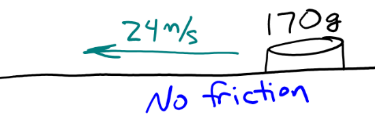 24m/s
170g
No friction